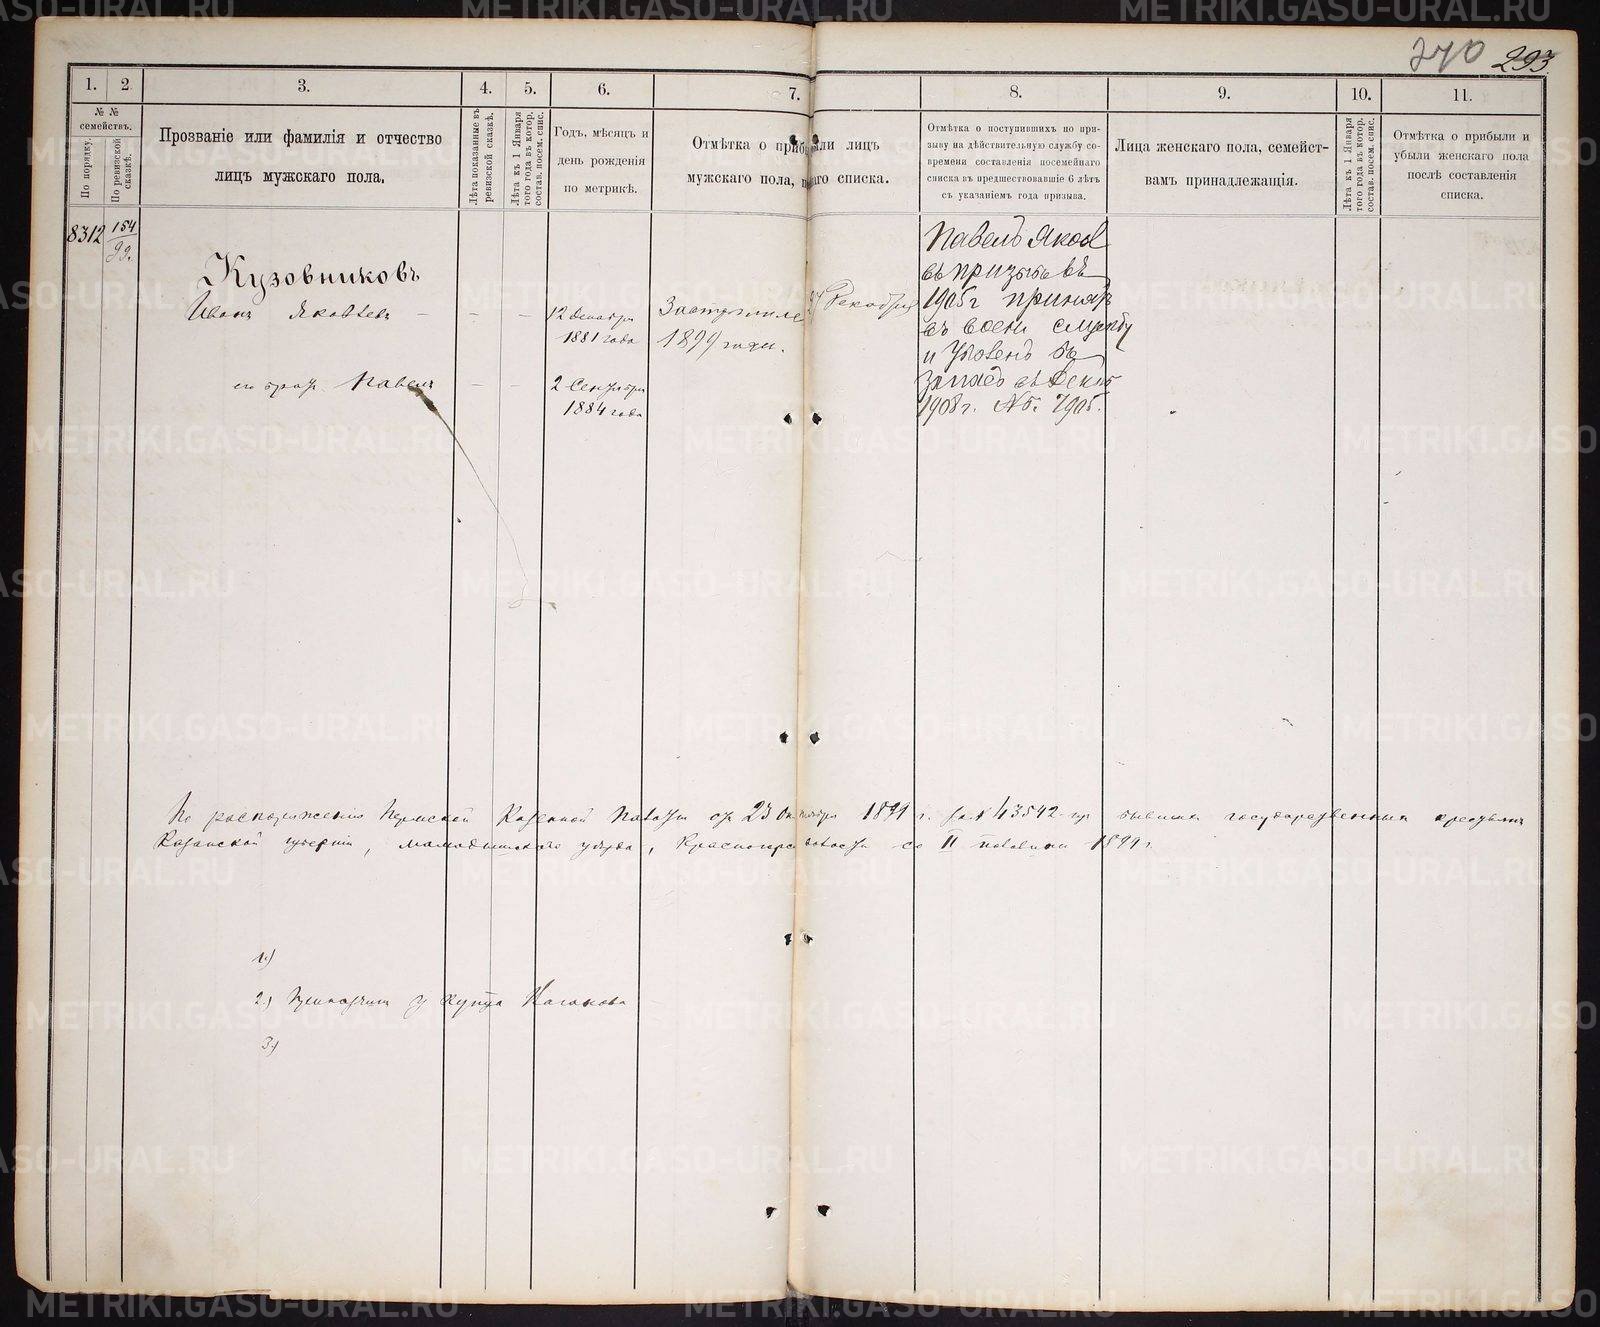 270 293
1. 2 3. 4. 5. 6. 7. 8. 9. 10. 11.
№ № семействъ.
По порядку.
По ревизской сказкѣ.
Прозваніе или фамилія и отчество
лицъ мужскаго пола.
Лѣта показанные въ ревизской сказкѣ.
Лѣта къ 1 Января того года въ котор. состав. посем. спис.
Годъ, мѣсяцъ и
день рожденія
по метрикѣ.
Отмѣтка о прибыли лицъ
мужскаго пола,
списка.
Отмѣтка о поступившихъ по при-
зыву на дѣйствительную службу со-
времени составленія посемейнаго
списка въ предшествовавшіе 6 лѣтъ
съ указаніемъ года призыва.
Лица женскаго пола, семейст-
вамъ принадлежащія.
Лѣта къ 1 Января того года въ котор. состав. посем. спис.
Отмѣтка о прибыли и
убыли женскаго пола
послѣ составленія
списка.
8312 154
93.
Кузовниковъ
Иванъ Яковлевъ - - - 12 декабря
1881 года
1899 года.
его братъ Павелъ - - 2 Сентября
1884 года
Павелъ Яковл
въ призывѣ
1905 г принятъ
въ воен службу
и уволенъ въ
запасъ въ Декаб
1908 г. 1905.
По распоряженію Пермской Казенной Палаты отъ 23 Октября 1899 г. за № 43542 бывшихъ государственныхъ крестьянъ
Казанской губерніи, мамадышскаго уѣзда, Красногорс волости со II половины 1899 г.
1.)
2.) у купца
3.)
METRIKI.GASO-URAL.RU